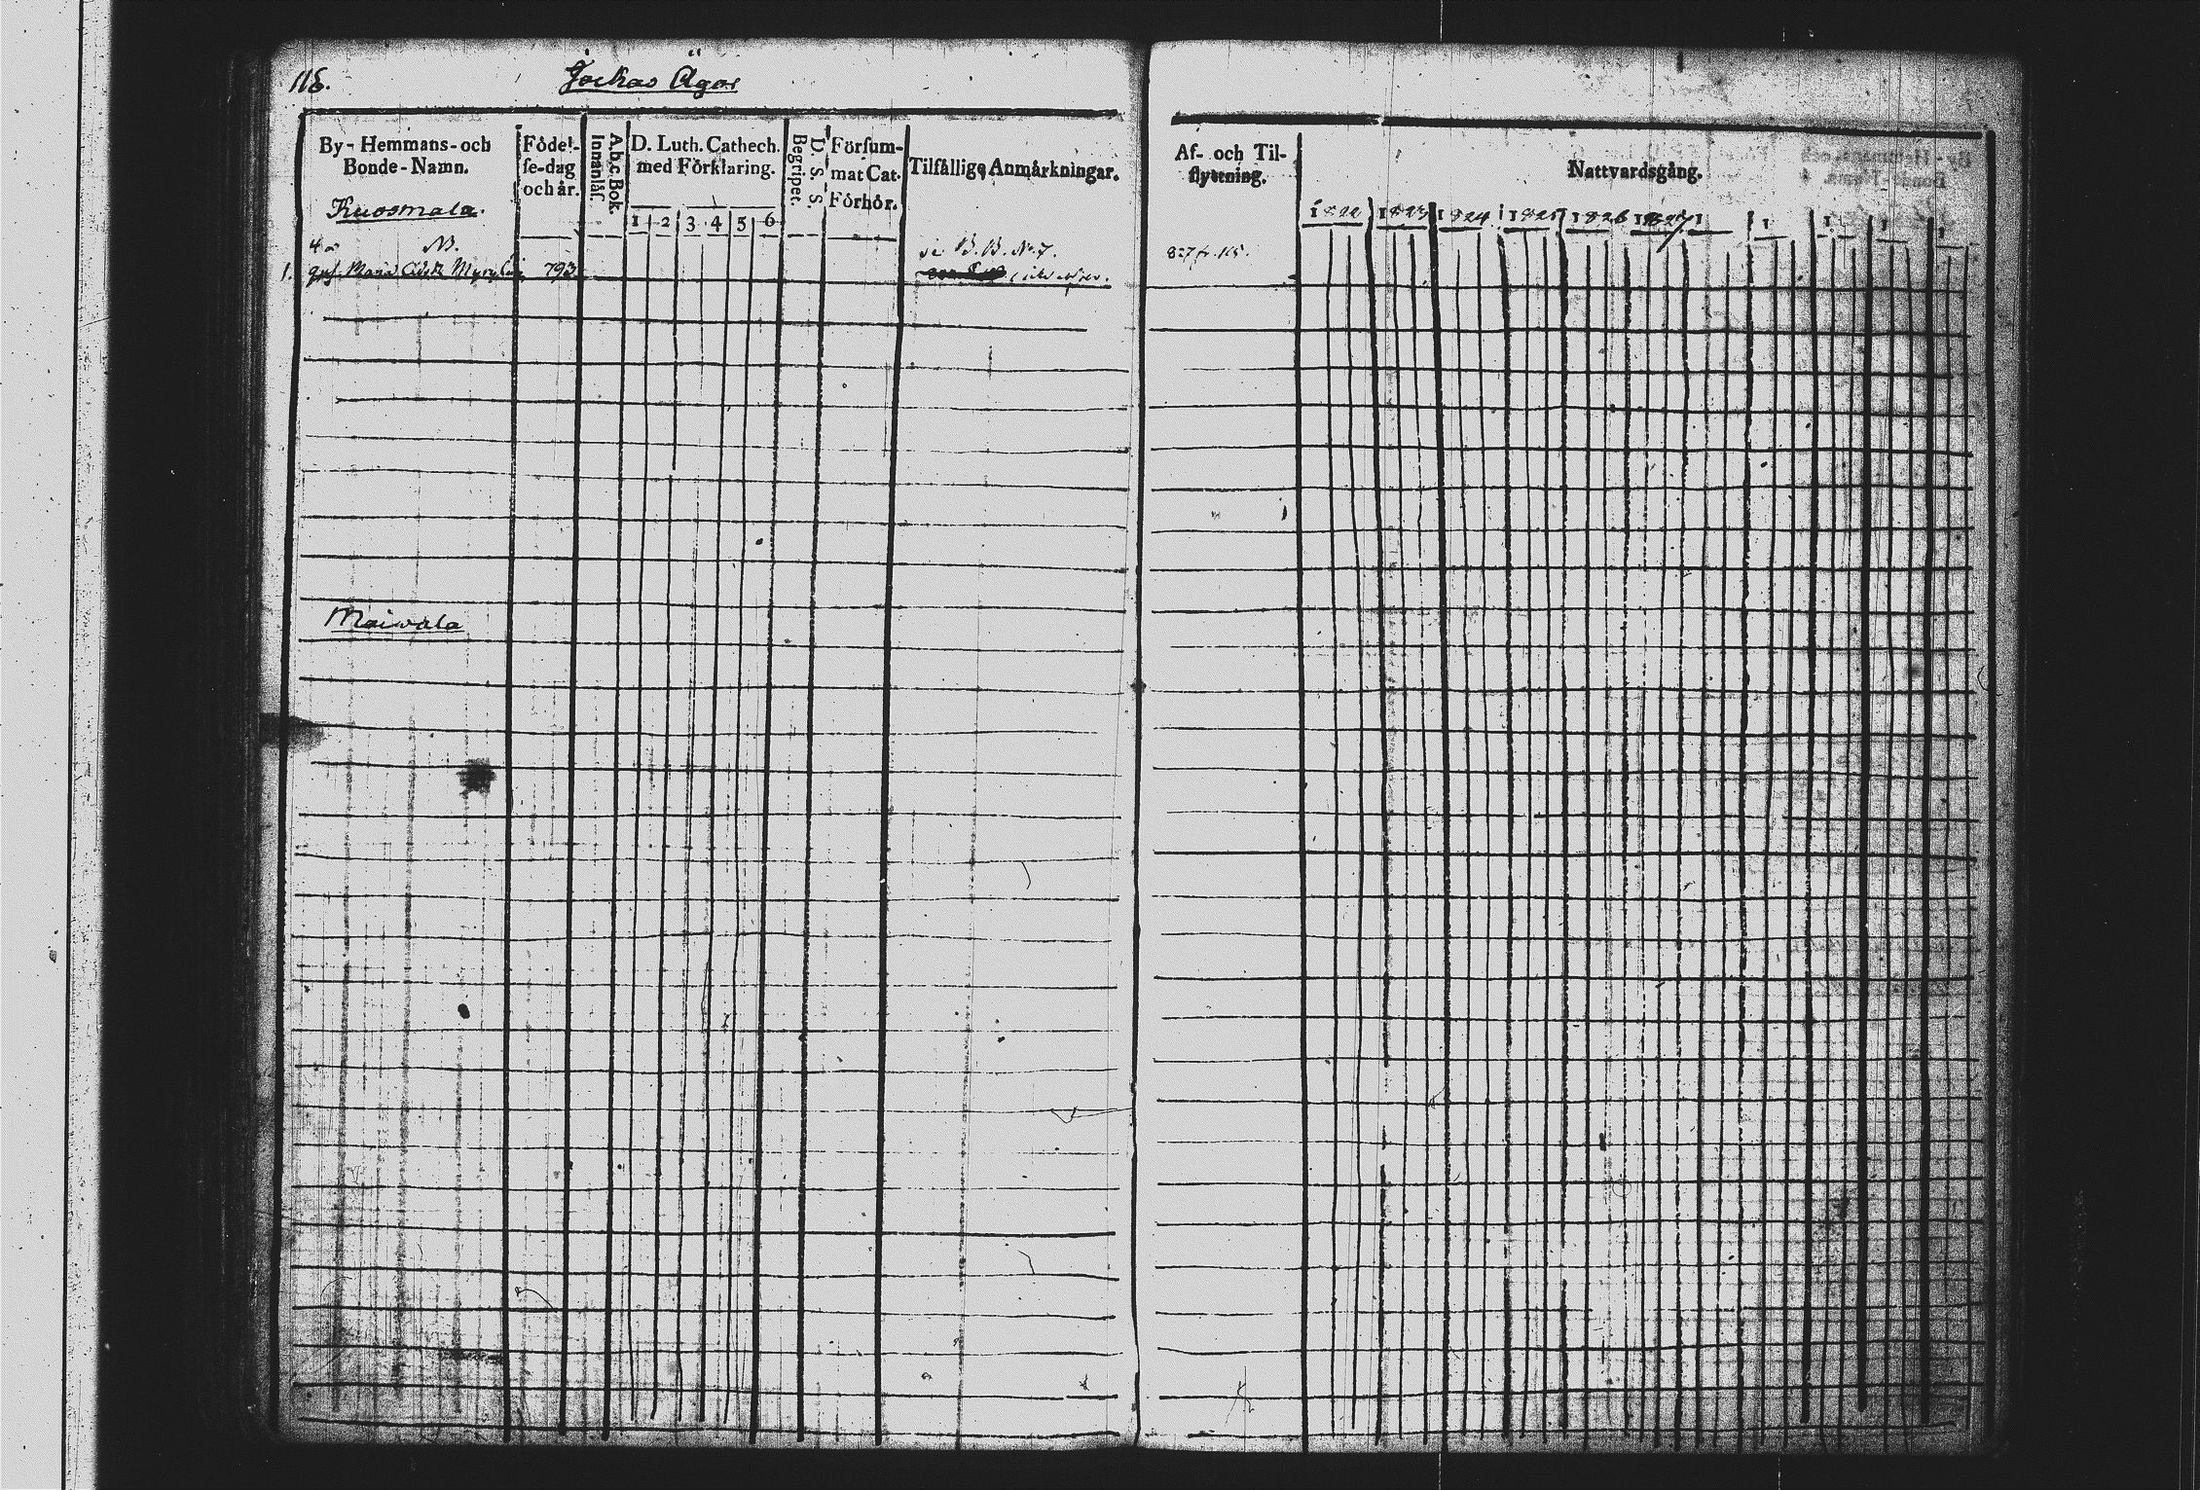 118.
Jockas Ägor
By- Hemmans- och
Bonde-Namn.
Födel-
se-dag
och år.
A.b.c. Bok.
Innanläs.
D. Luth. Cathech.
med Förklaring.
1 2 3 4 5 6
D. S. S.
Begripet.
Försum-
mat Cat.
Förhör.
Tilfällige Anmärkningar.
Kuosmala.
N.
se B. B. No. 7.
1. Maria 793
Maivala
Af- och Til-
flyttning.
Nattvardsgång.
1822 1823 1824 1825 1826 1827 1 1 1 1 1
827 fr. 115.